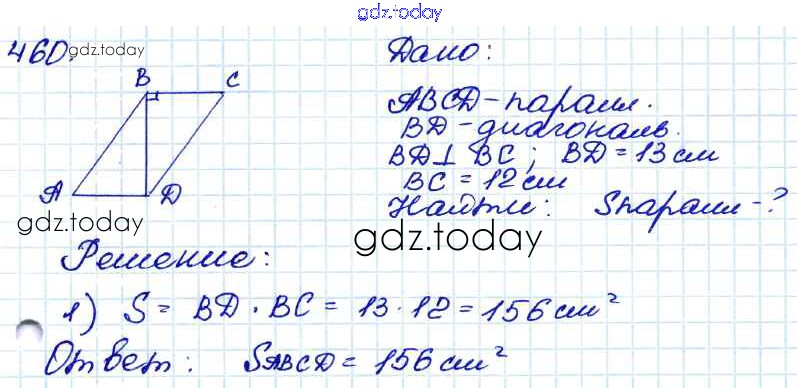 gdz.today
460.
gdz.today
Дано:
B C
ABCD - паралл.
BD - диагональ.
BD ⊥ BC ; BD = 13 см
BC = 12 см
A D
Найти: Sпаралл - ?
gdz.today
gdz.today
Решение:
1) S = BD · BC = 13 · 12 = 156 см²
Ответ: SABCD = 156 см²